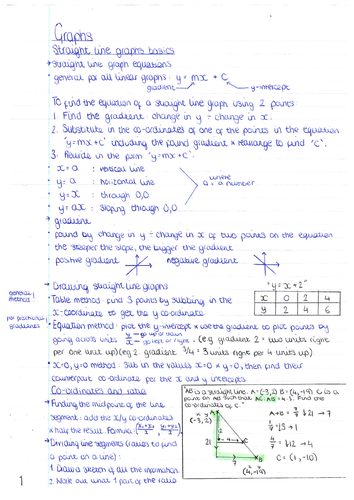 Graphs
Straight line graphs basics
→ Straight line graph equations
• general for all linear graphs : y = mx + c
gradient
y-intercept
To find the equation of a straight line graph using 2 points:
1. Find the gradient change in y ÷ change in x.
2. Substitute in the co-ordinates of one of the points in the equation
'y=mx+c' including the found gradient & rearrange to find 'c'.
3. Rewrite in the form 'y=mx+c'.
• x=a : vertical line
• y=a : horizontal line
where a = a number
• y=x : through 0,0
• y=ax : sloping through 0,0
→ gradient
• found by change in y ÷ change in x of two points on the equation
• the steeper the slope, the bigger the gradient
• positive gradient
negative gradient
→ Drawing straight line graphs
"y=x+2"
general method
• Table method: find 3 points by subbing in the
x-coordinate to get the y coordinate
x 0 2 4
y 2 4 6
for fractional gradients
• Equation method: plot the y-intercept & use the gradient to plot points by
going across units y → go up or down
x → go left or right. (eg gradient 2 = two units right
per one unit up) (eg 2. gradient 3/4 = 3 units right per 4 units up)
• x=0, y=0 method: Sub in the values x=0 & y=0, then find their
counterpart co-ordinate for the x and y intercepts.
Co-ordinates and ratio
→ Finding the midpoint of the line
segment: add the x/y co-ordinates
& half the result. Formula (x₁+x₂/2, y₁+y₂/2)
→ Dividing line segments (ratios to find
a point on a line):
1. Draw a sketch of all the information
2. Work out what 1 part of the ratio
"AB is a straight line. A=(-3,2) B=(4,-19) C is a
point on AB such that AC:CB = 4:3. Find the
co-ordinates of C."
x y
(-3,2)
A
21
C
7
B
(4,-19)
A→B = 7 ↓21 → 7
÷7 = ↓3 → 1
4/7 = ↓12 → 4
C = (1,-10)
1